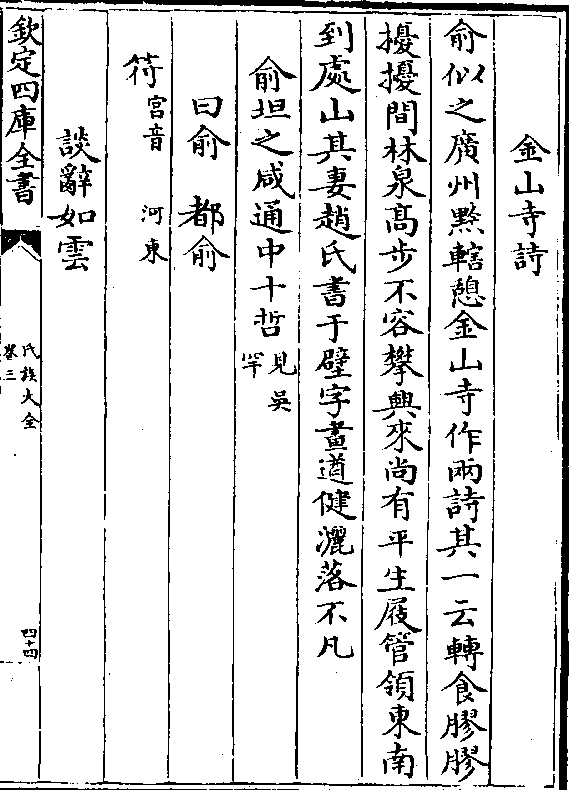 金山寺詩
俞似之廣州黥轄憩金山寺作兩詩其一云轉食膠膠
擾擾間林泉髙步不容攀興來尚有平生屐管領東南
到處山其妻趙氏書于壁字畫遒健灑落不凡
俞坦之咸通中十哲見吳罕
曰俞 都俞
符宮音 河東
談辭如雲
欽定四庫全書
氏族大全
卷三
四十四